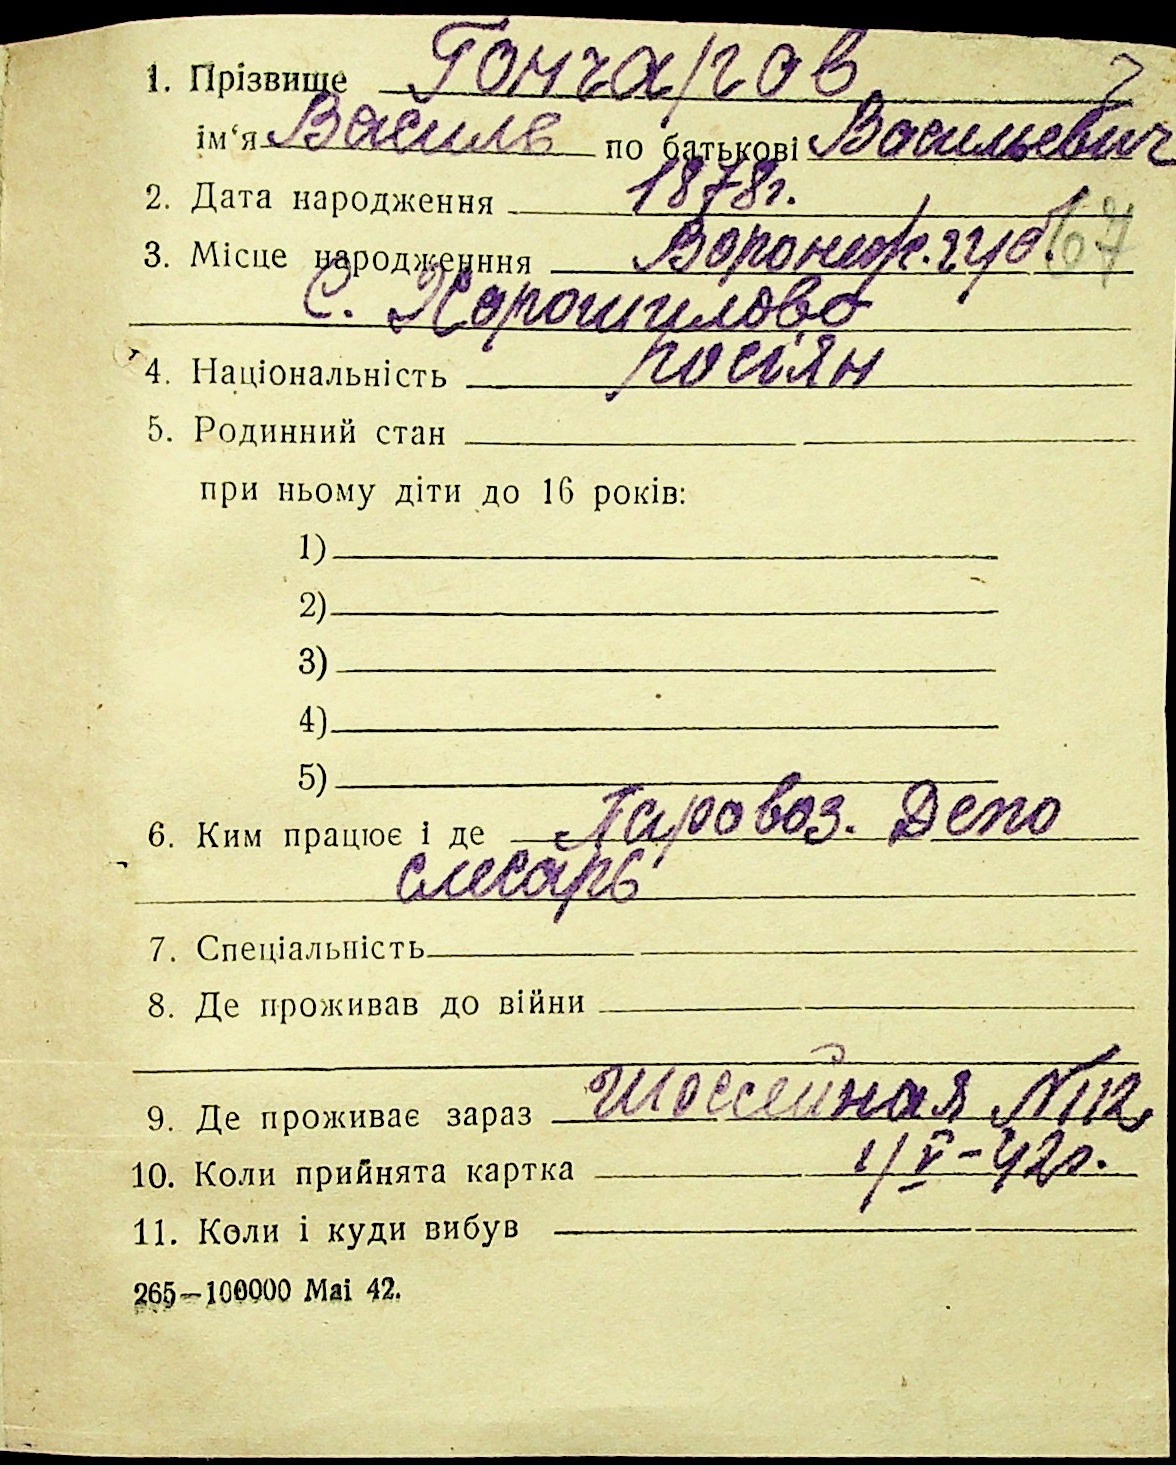 1. Прізвище Гончаров 7
ім‘я Василь по батькові Васильевич
2. Дата народження 1878г.
3. Місце народженння Воронеж. губ. 67
С. Хорошилово
4. Національність росіян
5. Родинний стан
при ньому діти до 16 років:
1)
2)
3)
4)
5)
6. Ким працює і де Паровоз. Депо
слесарь
7. Спеціальність
8. Де проживав до війни
9. Де проживає зараз Шоссейная №112
10. Коли прийнята картка 1/V-42г.
11. Коли і куди вибув
265—100000 Mai 42.